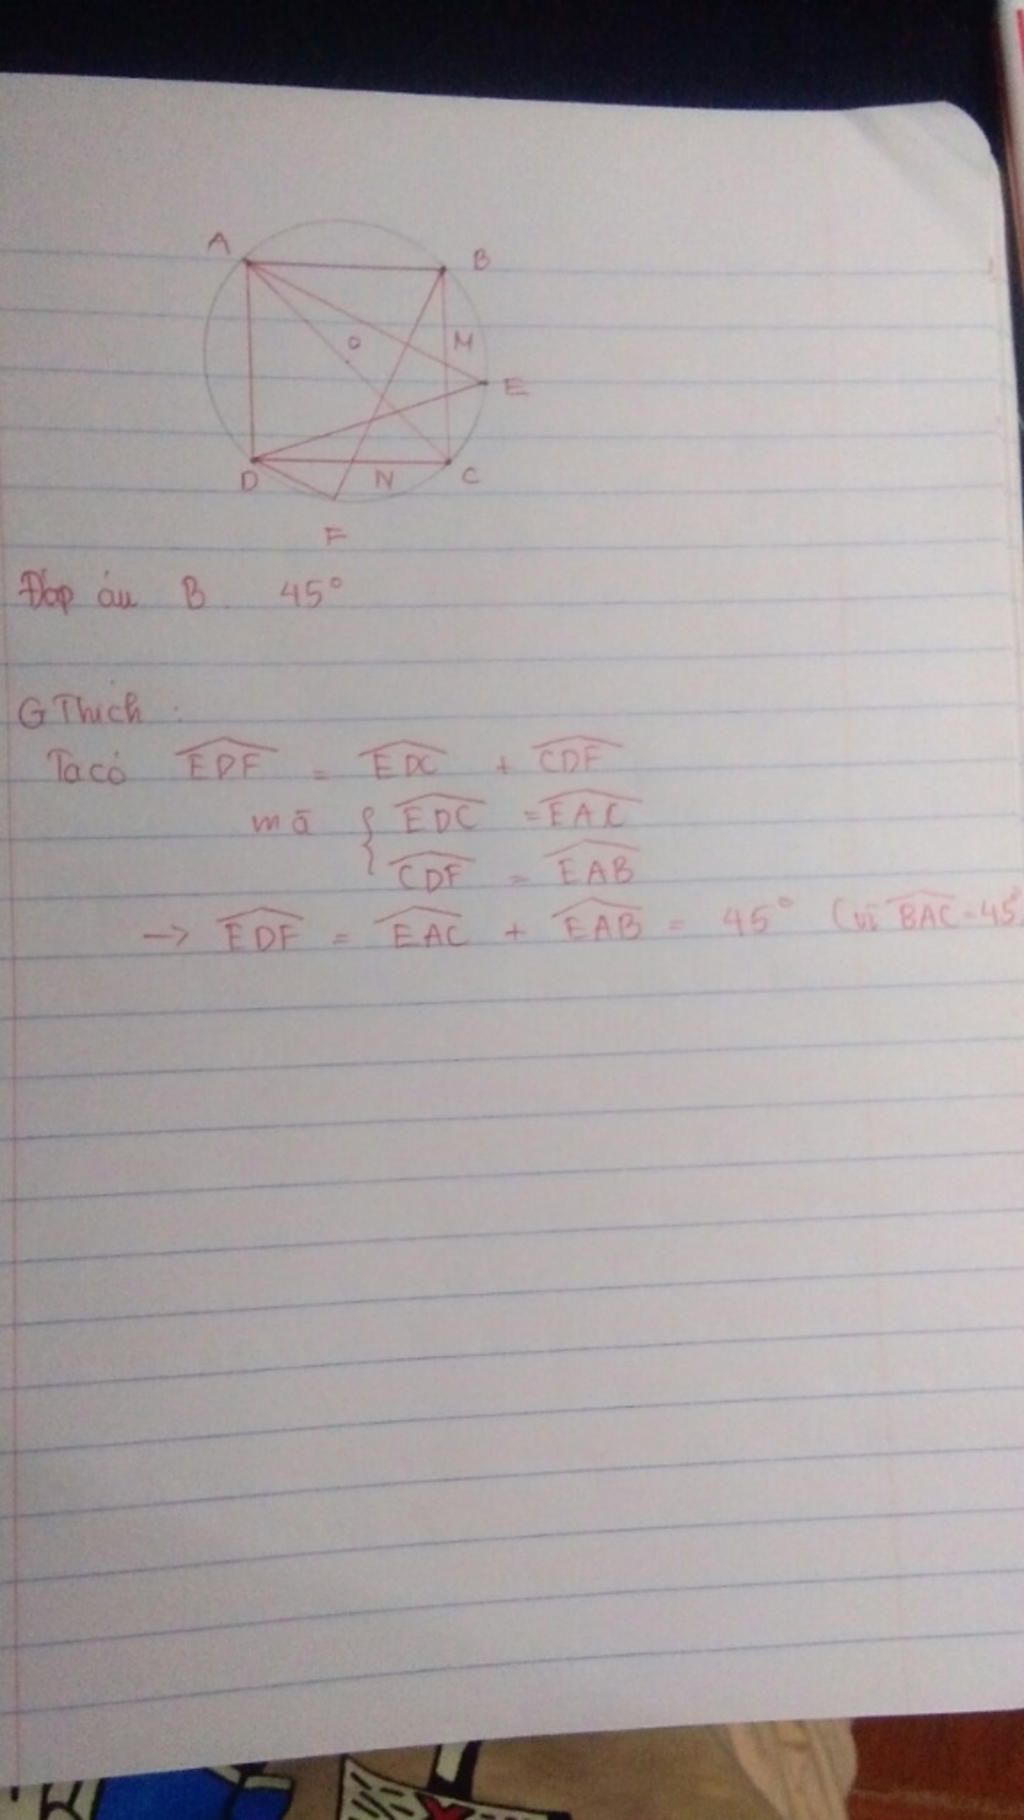 A
B
O
M
E
D
N
C
F
Đáp áu B. 45°
G Thích :
Ta có EDF = EDC + CDF
mà { EDC = EAC
CDF = EAB
-> EDF = EAC + EAB = 45° (vì BAC = 45°)